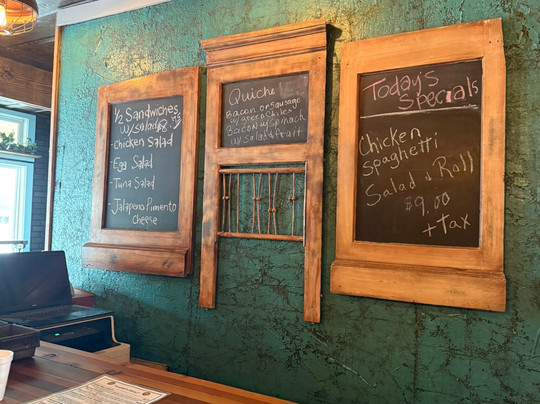 1/2 Sandwiches
w/salad
-Chicken Salad
- Egg Salad
- Tuna Salad
- Jalapeno Pimento
Cheese
Quiche
Bacon or Sausage
w/ green chiles
Bacon w/ Spinach
w/ Salad or fruit
Today's
Specials
Chicken
Spaghetti
Salad & Roll
$9.00
+ tax